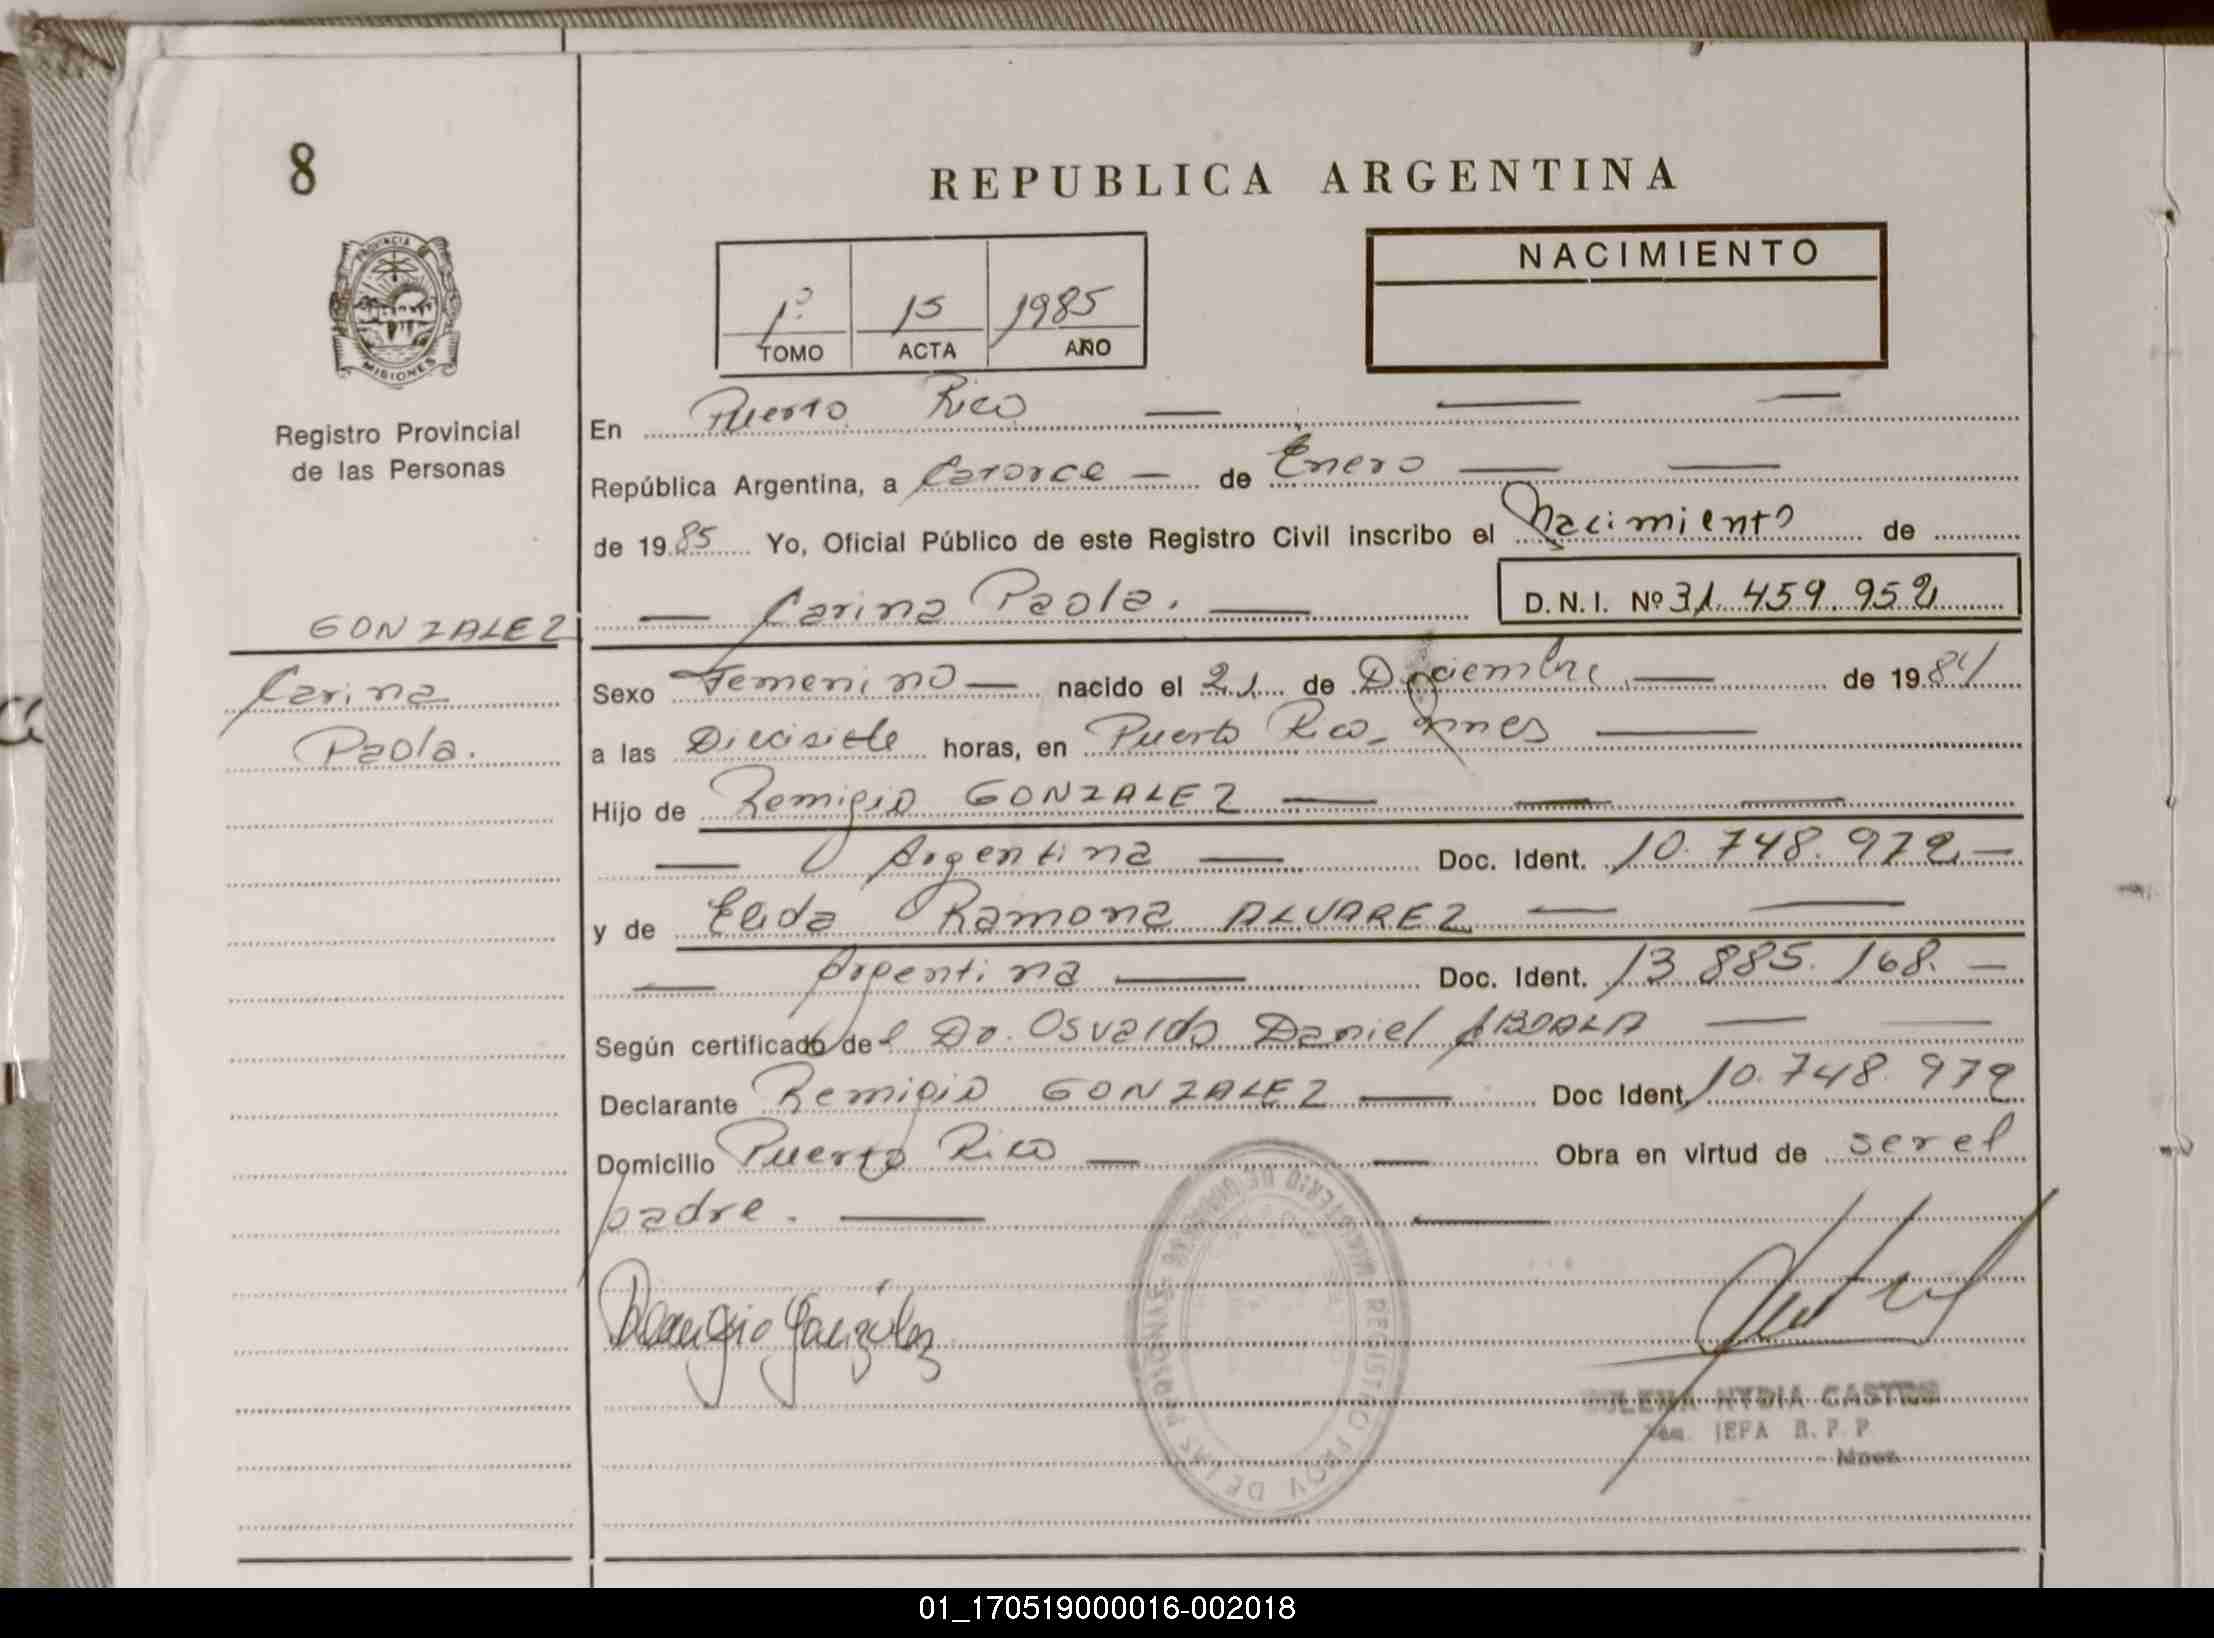 8
REPUBLICA ARGENTINA
PROVINCIA DE MISIONES
Registro Provincial
de las Personas
1º 15 1985
TOMO ACTA AÑO
NACIMIENTO
En Puerto Rico
República Argentina, a Catorce de Enero
de 1985 Yo, Oficial Público de este Registro Civil inscribo el Nacimiento de
Carina Paola. D.N.I. Nº 31.459.952
GONZALEZ
Carina
Paola.
Sexo Femenino nacido el 21 de Diciembre de 1984
a las Diecisiete horas, en Puerto Rico - Mnes
Hijo de Remigio GONZALEZ
Argentina Doc. Ident. 10.748.972
y de Elida Ramona ALVAREZ
Argentina Doc. Ident. 13.885.168.
Según certificado del Dr. Osvaldo Daniel
Declarante Remigio GONZALEZ Doc Ident. 10.748.972
Domicilio Puerto Rico Obra en virtud de ser el
padre.
Remigio González
NYDIA CASTRO
JEFA R. P. P
Mnes.
REGISTRO PROV. DE LAS PERSONAS
01_170519000016-002018